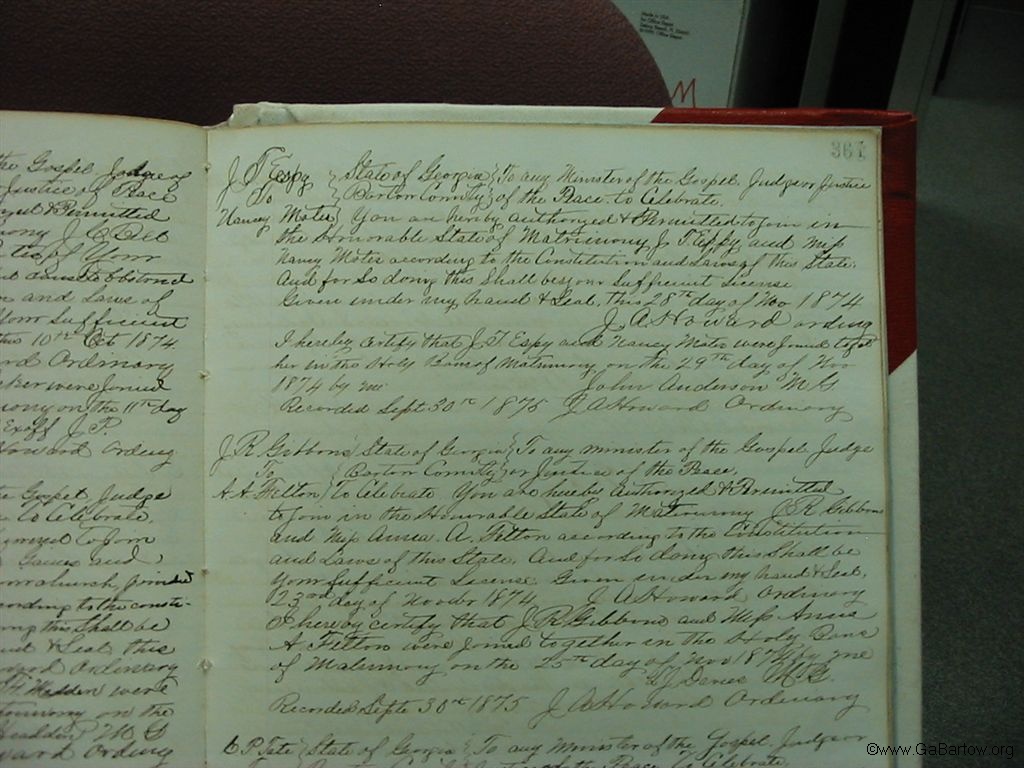 Made in USA
for Office Depot
361
the Gospel Judge or
Justice of Peace
ment & Permitted
mony J C
of Your
and
and Laws of
Your Sufficient
this 10th Oct 1874
Ordinary
were Joined
mony on the 11th day
J. P.
Howard Ordinary
the Gospel Judge
to Celebrate.
to Join
Gaines and
Joined
according to the consti-
this Shall be
& Seal this
Ordinary
Madden were
Matrimony on the
M G
Howard Ordinary
J T Espy } State of Georgia } To any Minister of the Gospel, Judge or Justice
To } Bartow County } of the Peace. to Celebrate.
Nancy Mater } You are hereby authorized & Permitted to Join in
the Honorable State of Matrimony J. T. Espy and Miss
Nancy Mater according to the Constitution and Laws of this State.
And for So doing this Shall be your Sufficient License
Given under my hand & Seal, this 28th day of Nov 1874
J. A Howard ording
I hereby certify that J. T. Espy and Nancy Mater were Joined toget
her in the Holy Bans of Matrimony on the 29th day of Nov
1874 by me John Anderson M G
Recorded Sept 30th 1875 J A Howard Ordinary
J R Gibbons } State of Georgia } To any minister of the Gospel Judge
To } Bartow County } or Justice of the Peace,
A A Felton } to Celebrate You are hereby authorized & Permitted
to Join in the Honorable State of Matrimony J R Gibbons
and Miss Annie. A. Felton according to the Constitution
and Laws of this State. And for So doing this Shall be
Your Sufficient License. Given under my hand & Seal.
23rd day of Novbr 1874 J A Howard Ordinary
I hereby certify that J. R. Gibbons and Miss Annie
A Felton were Joined together in the Holy Bans
of Matrimony on the 25th day of Nov 1874 by me
Davies M G.
Recorded Septe 30th 1875 J A Howard Ordinary
C P Tate } State of Georgia } To any Minister of the Gospel, Judge or
of the Peace to Celebrate.
©www.GaBartow.org